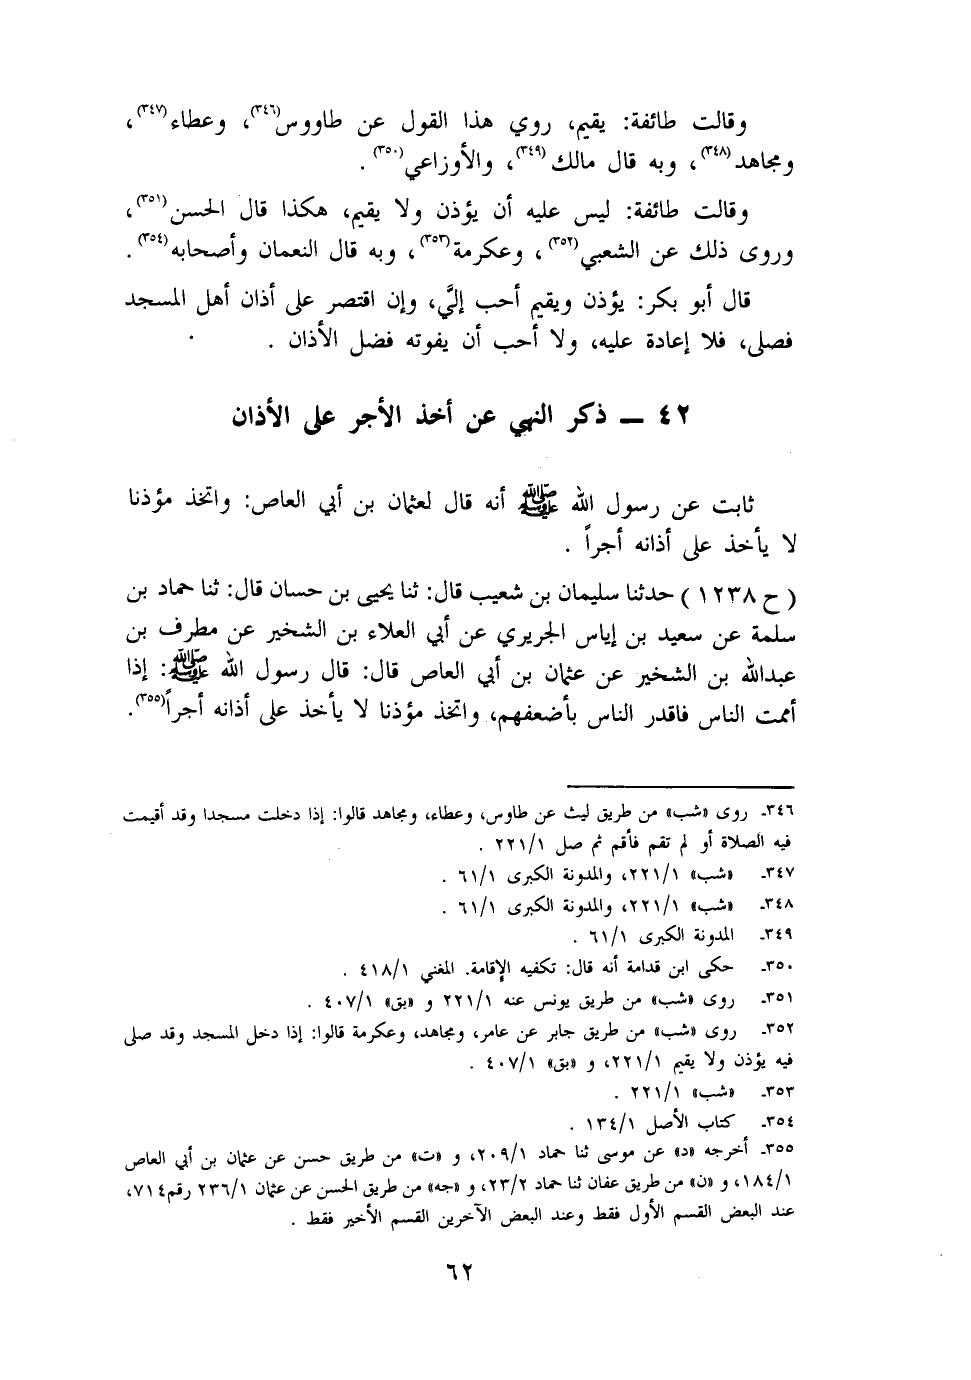 وقالت طائفة: يقيم، روي هذا القول عن طاووس(٣٤٦)، وعطاء(٣٤٧)،
ومجاهد(٣٤٨)، وبه قال مالك(٣٤٩)، والأوزاعي(٣٥٠) .
وقالت طائفة: ليس عليه أن يؤذن ولا يقيم، هكذا قال الحسن(٣٥١)،
وروى ذلك عن الشعبي(٣٥٢)، وعكرمة(٣٥٣)، وبه قال النعمان وأصحابه(٣٥٤) .
قال أبو بكر: يؤذن ويقيم أحب إليَّ، وإن اقتصر على أذان أهل المسجد
فصلى، فلا إعادة عليه، ولا أحب أن يفوته فضل الأذان .
٤٢ ــ ذكر النهي عن أخذ الأجر على الأذان
ثابت عن رسول الله ﷺ أنه قال لعثمان بن أبي العاص: واتخذ مؤذنا
لا يأخذ على أذانه أجراً .
( ح ١٢٣٨ ) حدثنا سليمان بن شعيب قال: ثنا يحيى بن حسان قال: ثنا حماد بن
سلمة عن سعيد بن إياس الجريري عن أبي العلاء بن الشخير عن مطرف بن
عبدالله بن الشخير عن عثمان بن أبي العاص قال: قال رسول الله ﷺ: إذا
أممت الناس فاقدر الناس بأضعفهم، واتخذ مؤذنا لا يأخذ على أذانه أجراً(٣٥٥).
٣٤٦ـ روى «شب» من طريق ليث عن طاوس، وعطاء، ومجاهد قالوا: إذا دخلت مسجدا وقد أقيمت
فيه الصلاة أو لم تقم فأقم ثم صل ٢٢١/١ .
٣٤٧ـ «شب» ٢٢١/١، والمدونة الكبرى ٦١/١ .
٣٤٨ـ «شب» ٢٢١/١، والمدونة الكبرى ٦١/١ .
٣٤٩ـ المدونة الكبرى ٦١/١ .
٣٥٠ـ حكى ابن قدامة أنه قال: تكفيه الإقامة. المغني ٤١٨/١ .
٣٥١ـ روى «شب» من طريق يونس عنه ٢٢١/١ و «بق» ٤٠٧/١ .
٣٥٢ـ روى «شب» من طريق جابر عن عامر، ومجاهد، وعكرمة قالوا: إذا دخل المسجد وقد صلى
فيه يؤذن ولا يقيم ٢٢١/١، و «بق» ٤٠٧/١ .
٣٥٣ـ «شب» ٢٢١/١ .
٣٥٤ـ كتاب الأصل ١٣٤/١ .
٣٥٥ـ أخرجه «د» عن موسى ثنا حماد ٢٠٩/١، و «ت» من طريق حسن عن عثمان بن أبي العاص
١٨٤/١، و «ن» من طريق عفان ثنا حماد ٢٣/٢، و «جه» من طريق الحسن عن عثمان ٢٣٦/١ رقم ٧١٤،
عند البعض القسم الأول فقط وعند البعض الآخرين القسم الأخير فقط .
٦٢